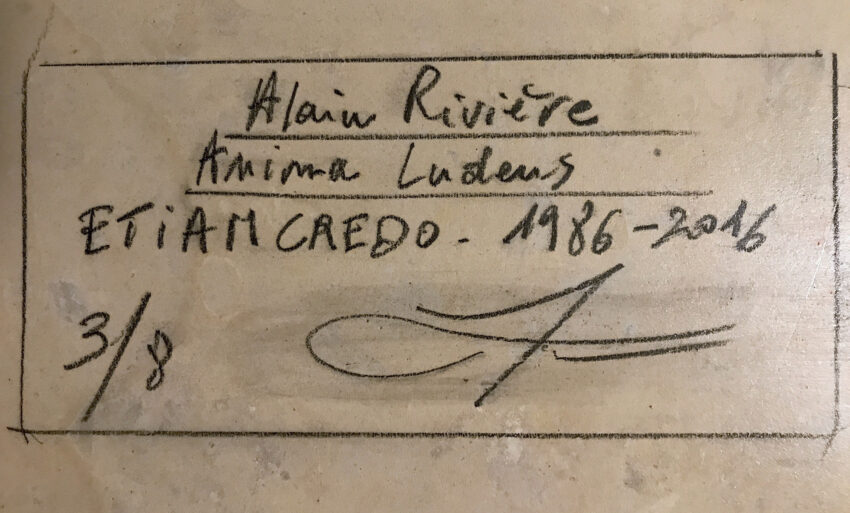 Alain Rivière
Anima Ludens
ETiAM CREDO - 1986-2016
3/8